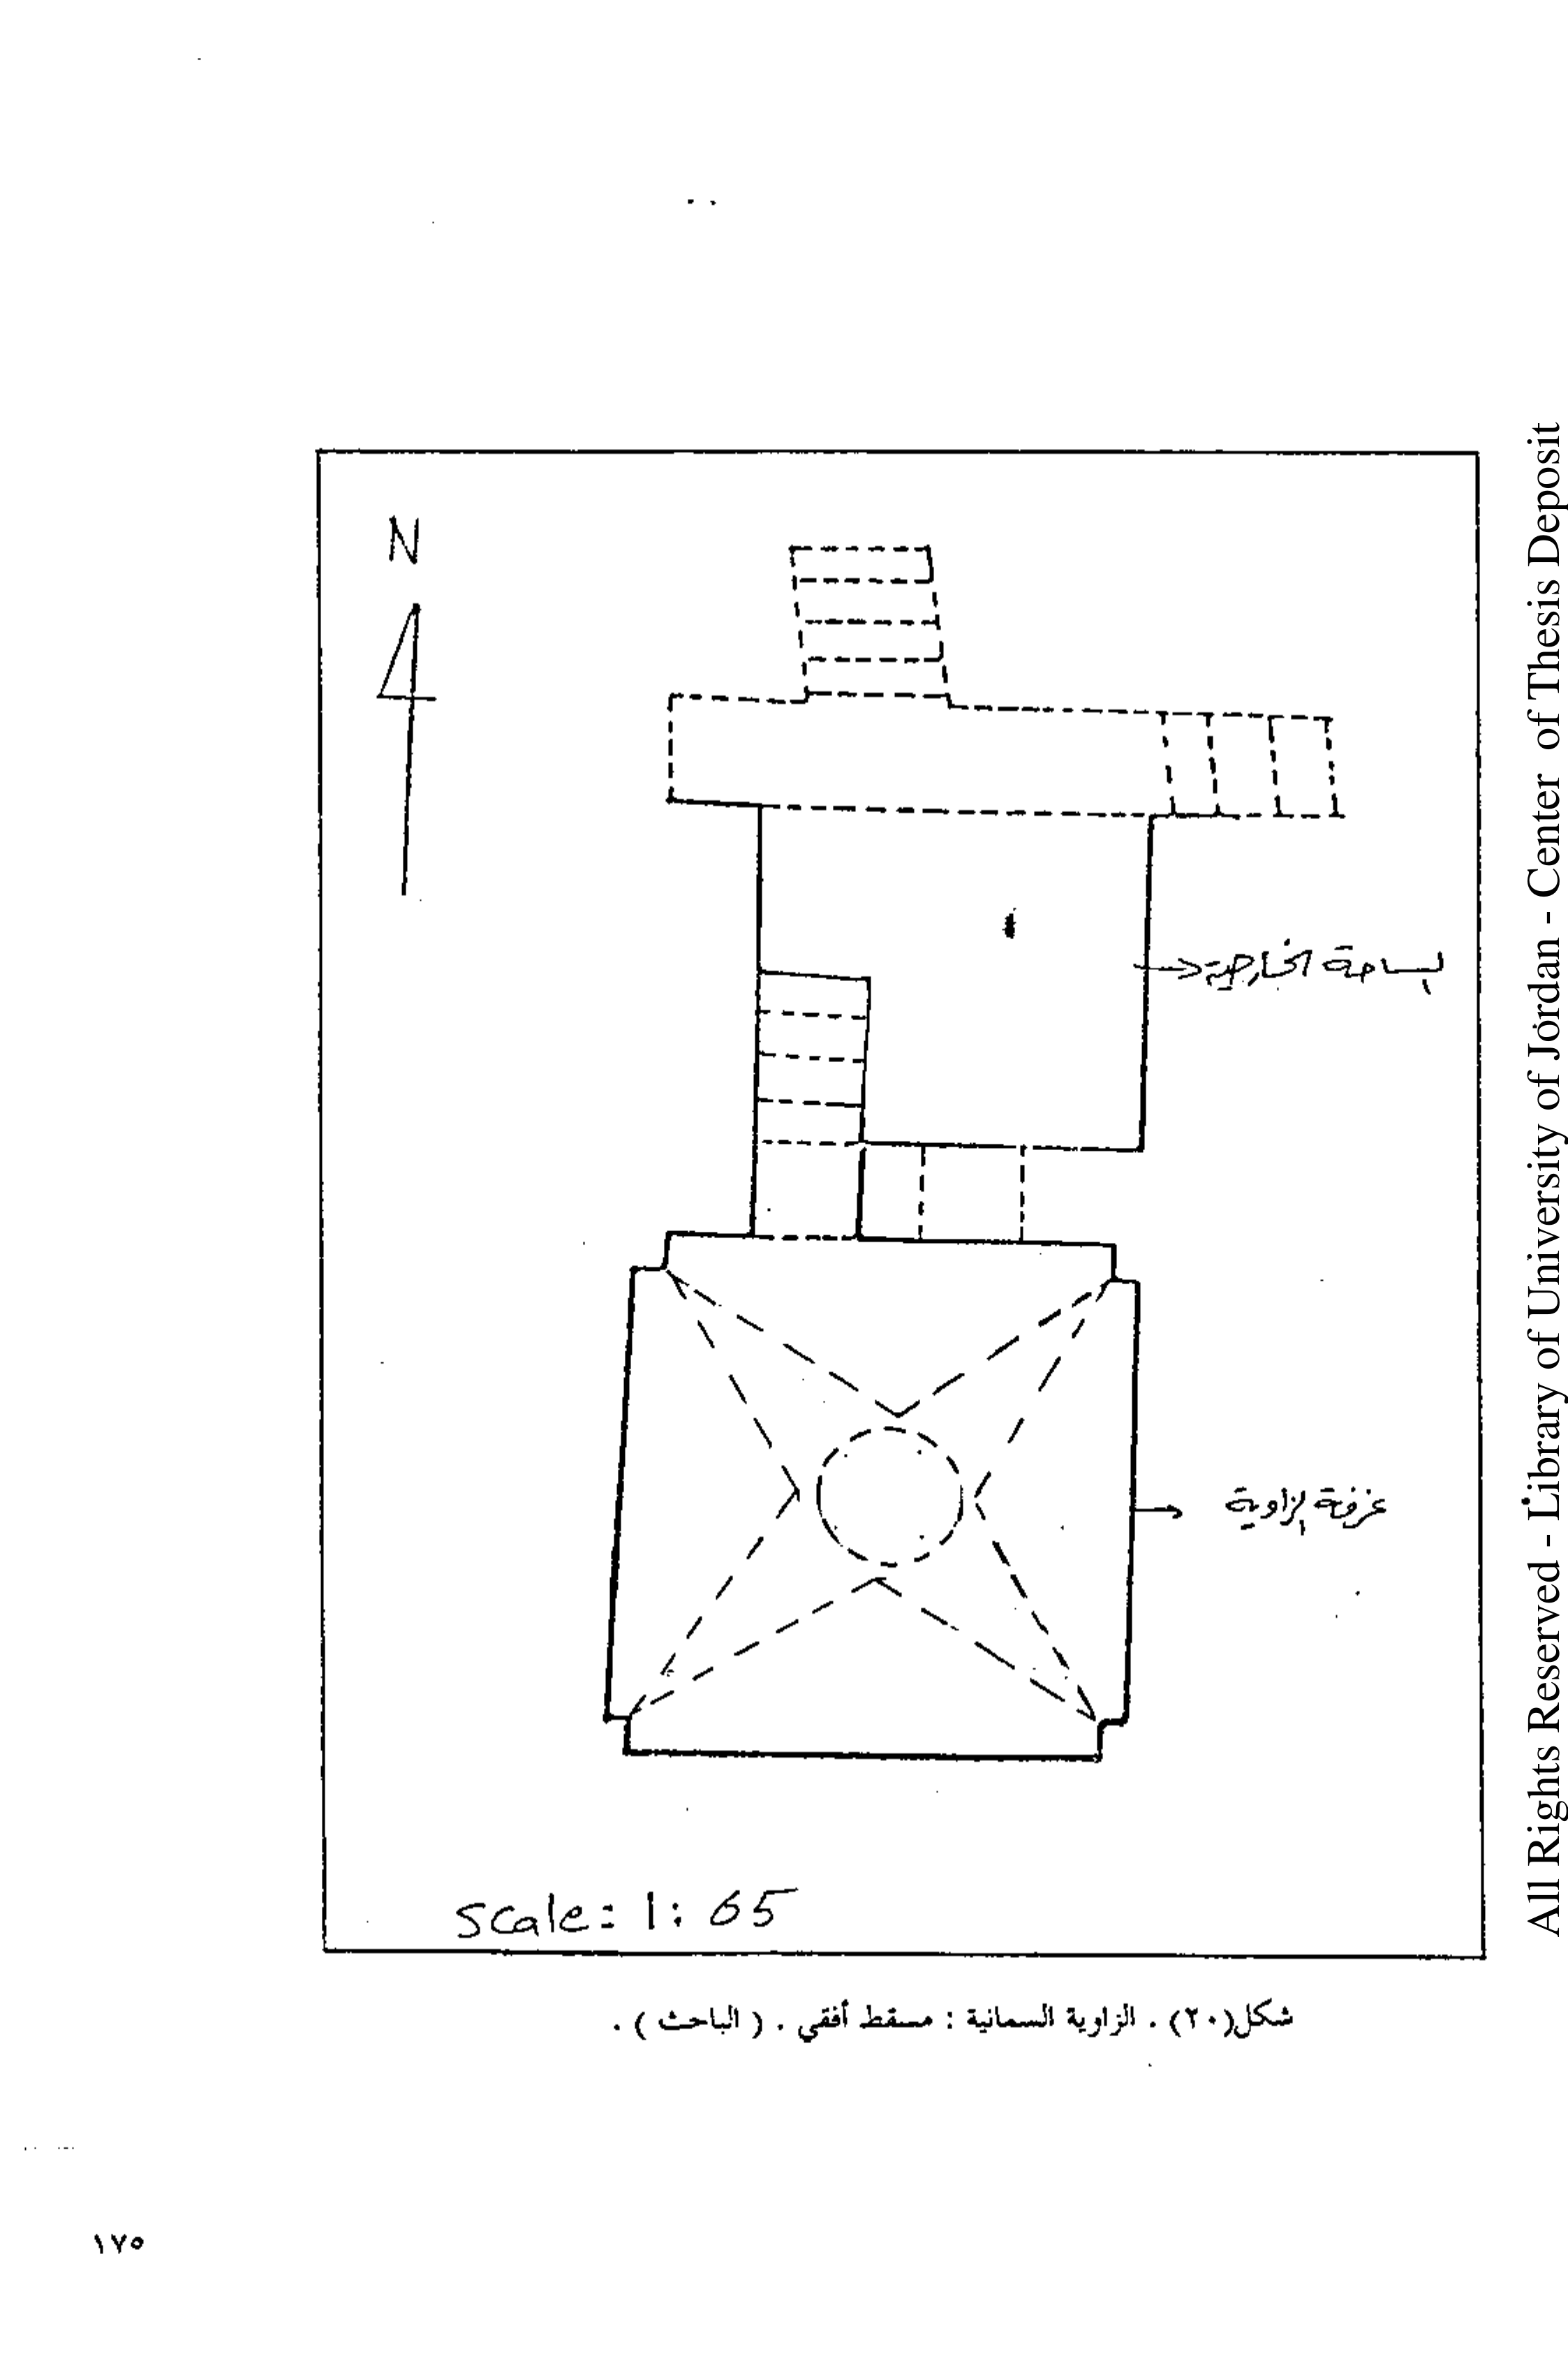 N
الساحة الخارجية
غرفة الزاوية
Scale = 1 : 65
شكل(٢٠) . الزاوية السمانية : مسقط أفقي . ( الباحث ) .
١٧٥
All Rights Reserved - Library of University of Jordan - Center of Thesis Deposit